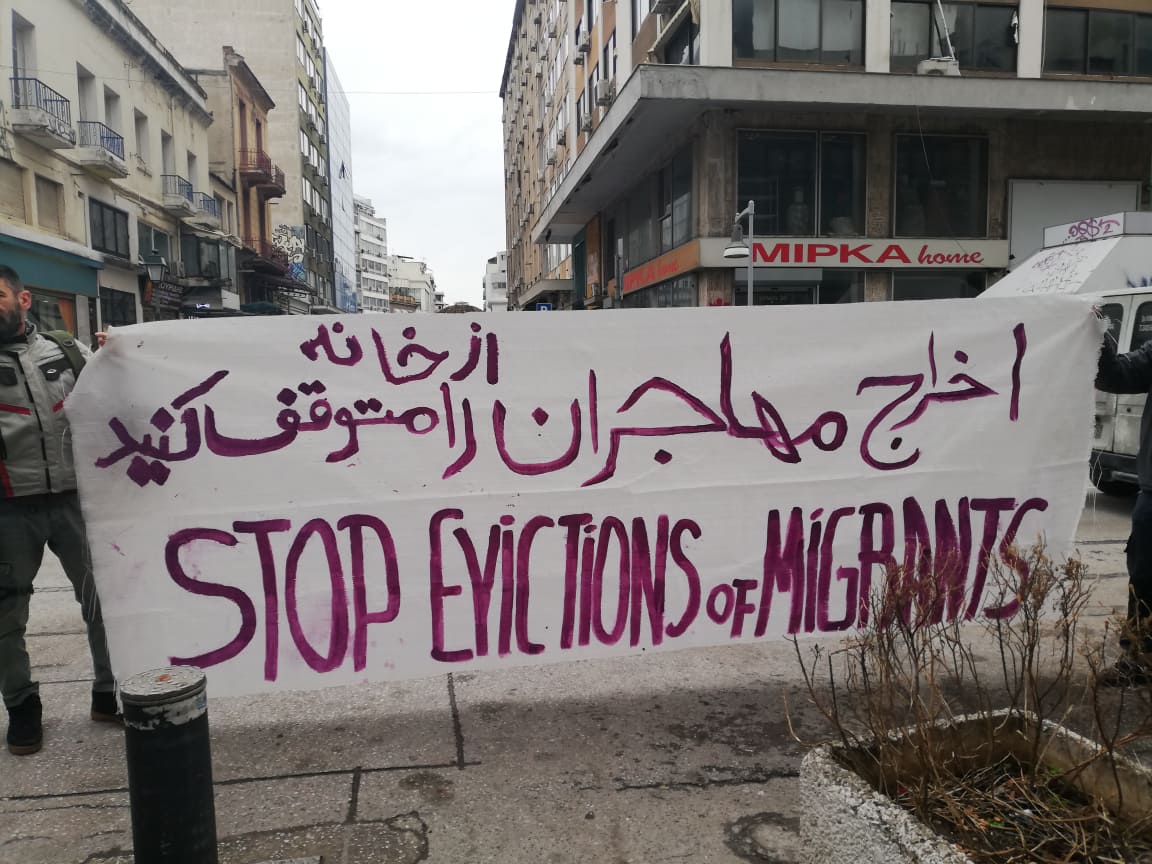 MIPKA home
MIPKA home
از خانه
اخراج مهاجران را متوقف کنید
STOP EVICTIONS OF MIGRANTS